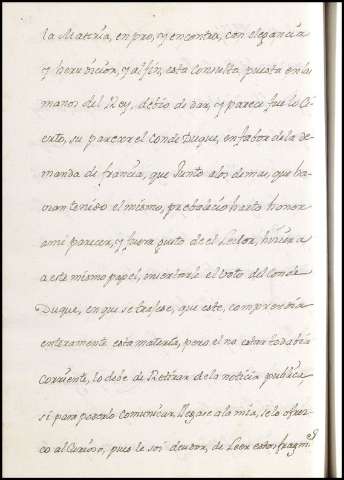 la Materia, en pro, y encontra, con elegancia
y herudicion, y alfin, esta Consulta puesta en las
manos del Rey, debio de dar, y parece fue lo Ci-
erto, su parecer el Conde Duque, en fabor de la de-
manda de francia, que Junto a los demas, que ha-
vian tenido el mismo, prebalecio harto honor
ami parecer, y fuera gusto de el Lector, hiciera
a este mismo papel, insertarle el Voto del Conde
Duque, en que se trasese, que este, comprendia
enteramente esta materia, pero el no estar todabia
Corriente, lo debe de Retirar de la noticia publica,
si para poderlo Comunicar, llegase a la mia, selo ofrez-
co al Curioso, pues le soi deudor, de Leer estos fragm.os